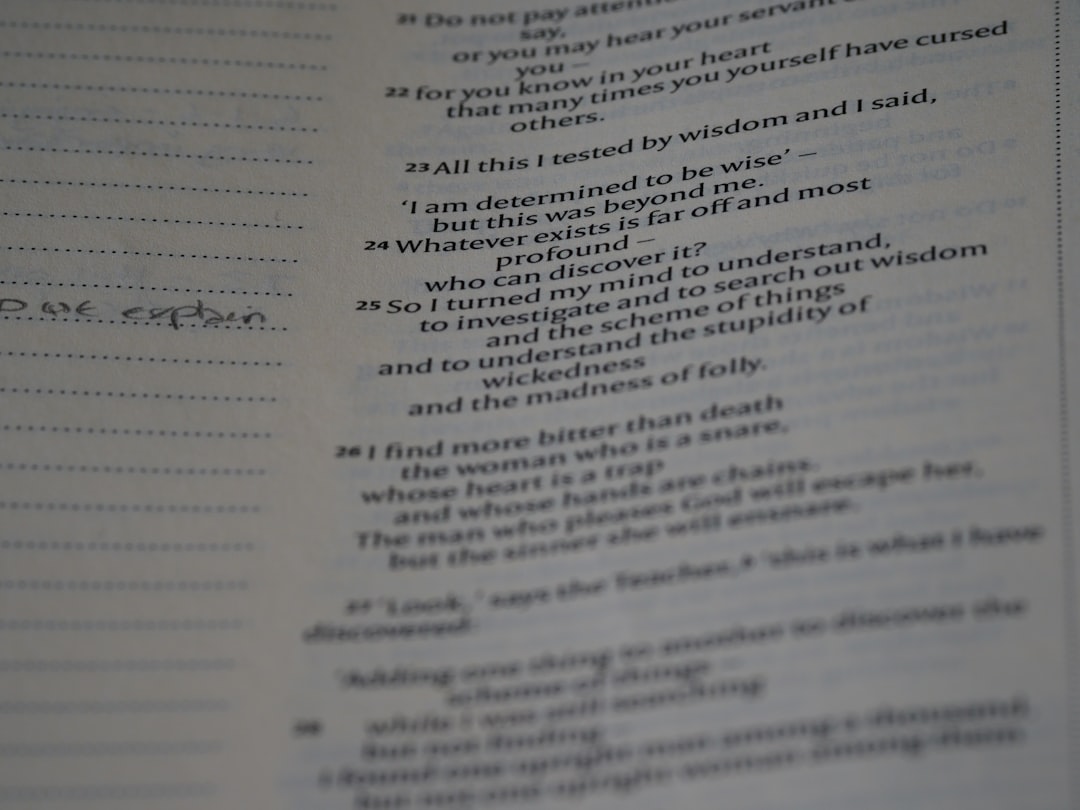 21 Do not pay attention
say,
or you may hear your servant
you –
22 for you know in your heart
that many times you yourself have cursed
others.
23 All this I tested by wisdom and I said,
‘I am determined to be wise’ –
but this was beyond me.
24 Whatever exists is far off and most
profound –
who can discover it?
25 So I turned my mind to understand,
to investigate and to search out wisdom
and the scheme of things
and to understand the stupidity of
wickedness
and the madness of folly.
26 I find more bitter than death
the woman who is a snare,
whose heart is a trap
and whose hands are chains.
The man who pleases God will escape her,
but the sinner she will ensnare.
27 ‘Look,’ says the Teacher, ‘this is what I have
discovered:
‘Adding one thing to another to discover the
scheme of things –
28 while I was still searching
but not finding –
I found one upright man among a thousand,
but not one upright woman among them
explain